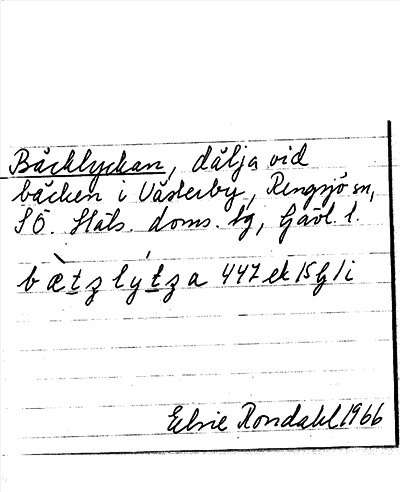 Bäcklyckan, dälja vid
bäcken i Västerby, Rengsjö sn,
SÖ. Häls. doms. tg, Gävl. l.
bæ̀tzlýtza 447 ek 15 G 1 i
Elsie Rondahl 1966